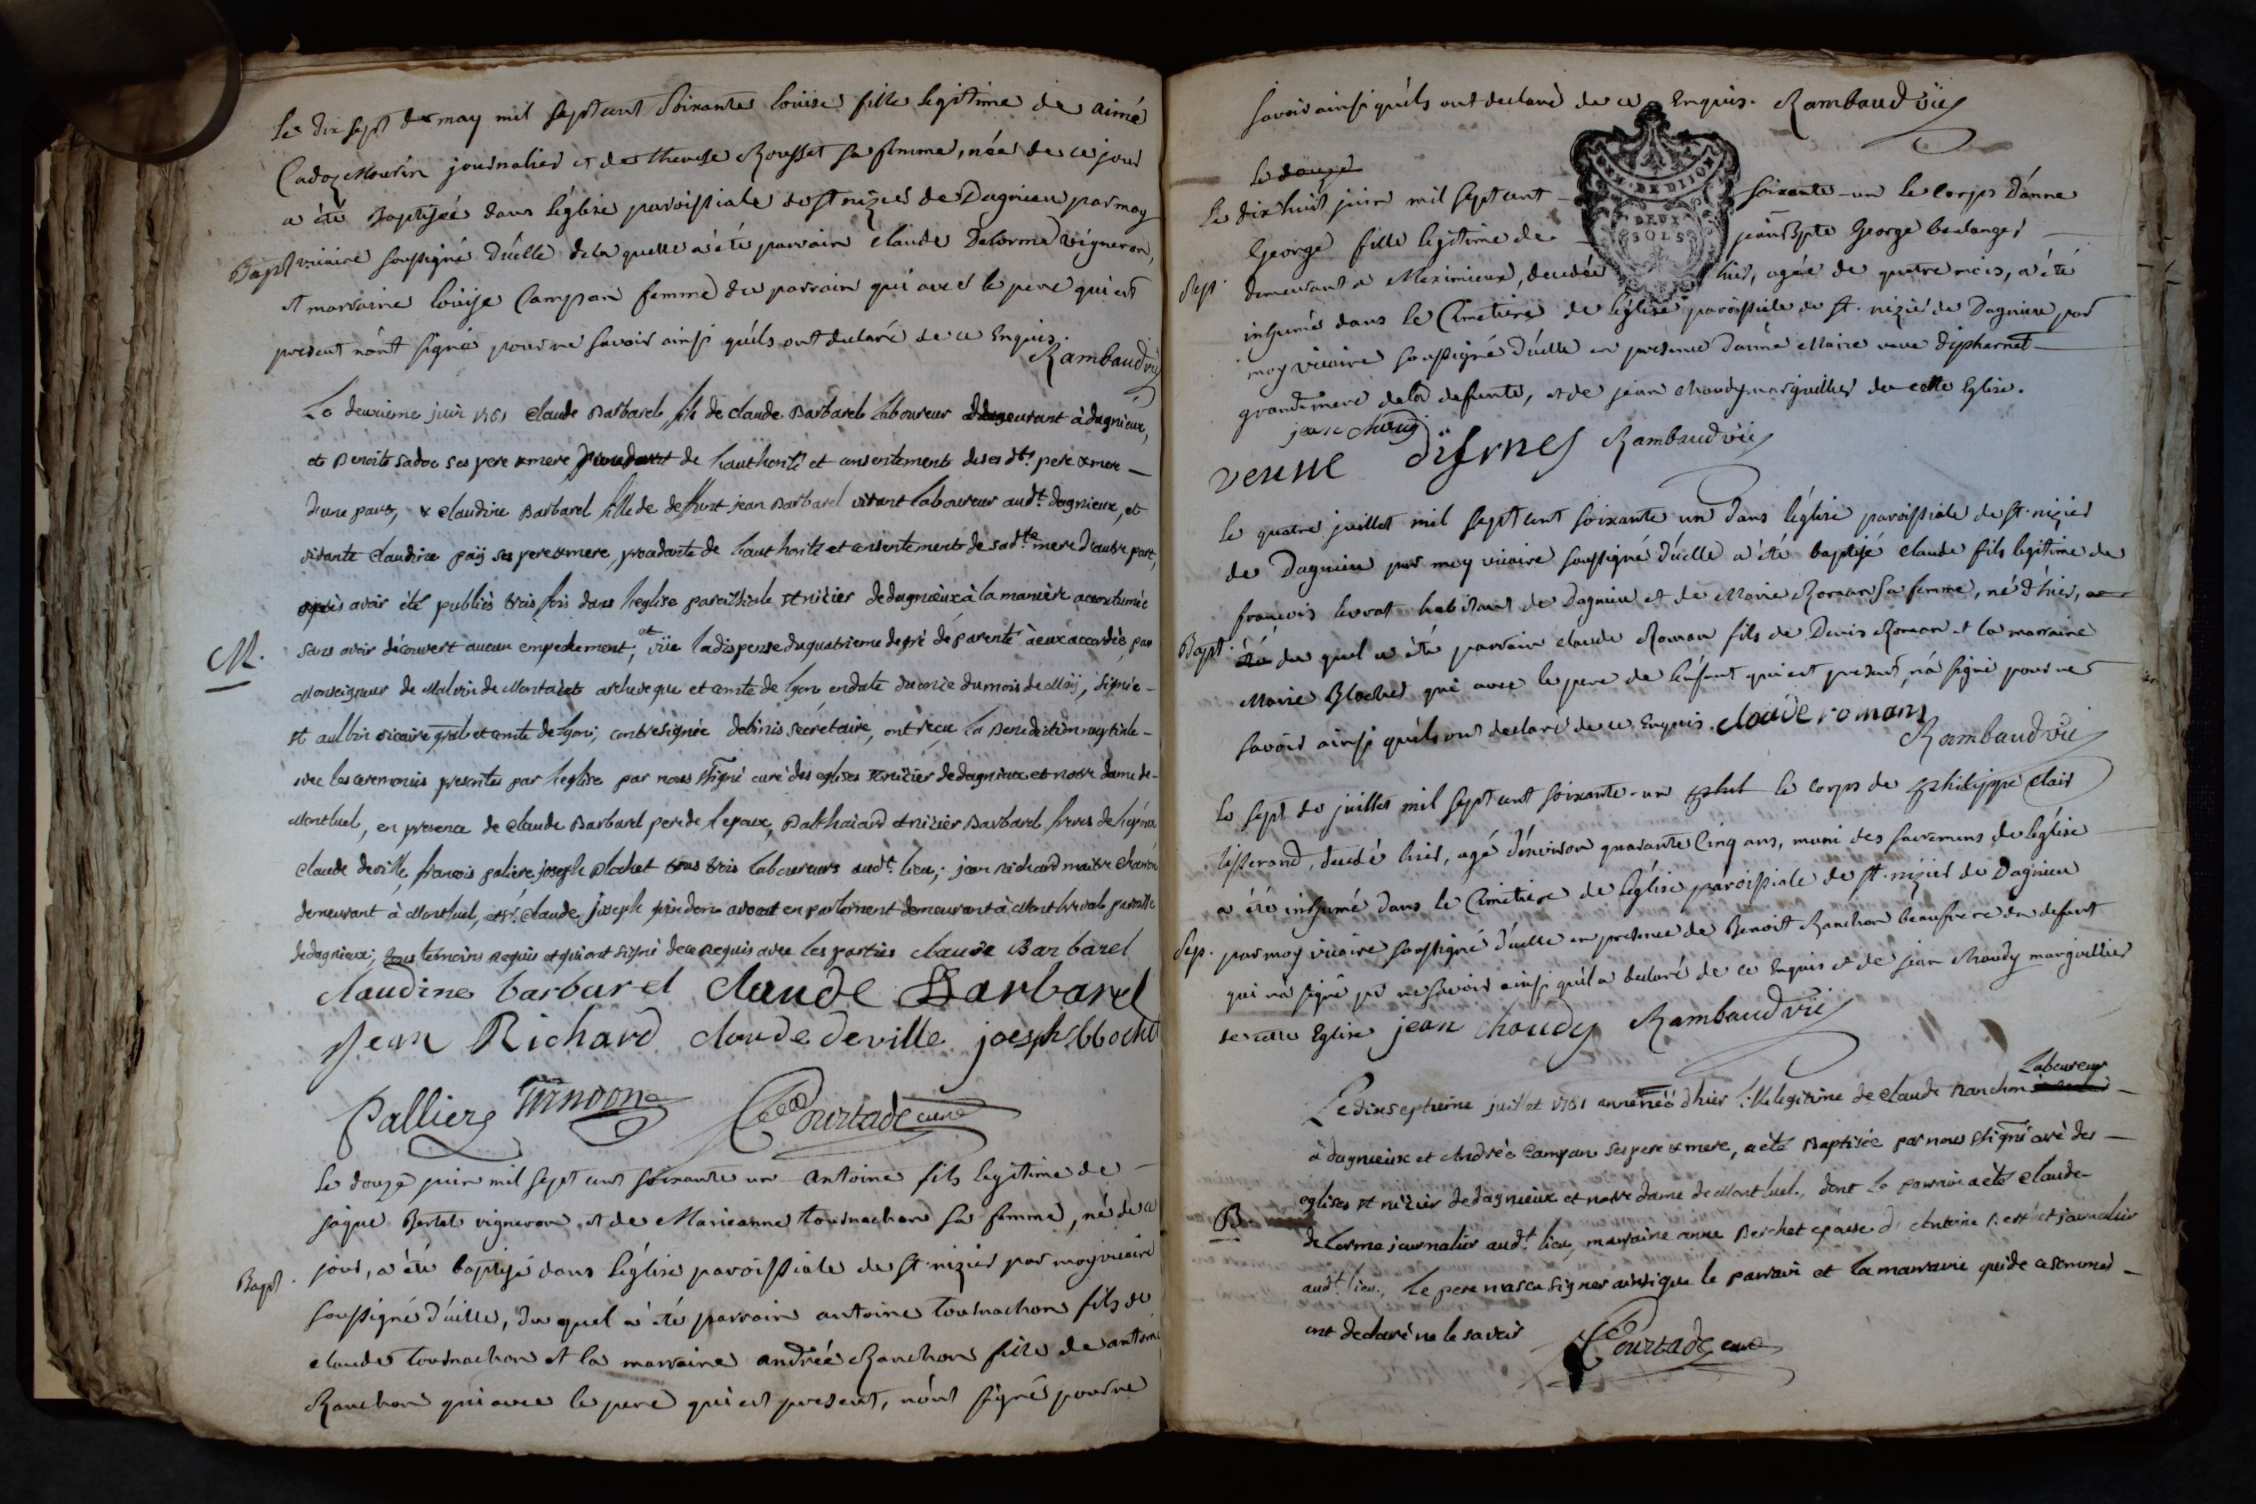 Le dix sept de may mil sept cent soixante louise fille legitime de aimé
Cadoz journalier et de therese Rousset sa femme, née de ce jour
a été Baptisée dans l'église paroissiale de st nizier de Dagnieu par moy
Bapt. vicaire soussigné d'icelle de la quelle a été parrain claude Delorme vigneron,
et marraine louise Campan femme du parrain qui avec le pere qui est
present n'ont signé pour ne savoir ainsi qu'ils ont declaré de ce Enquis.
Rambaud vic
Le deuxieme juin 1761 Claude Barbarel fils de claude Barbarel laboureur demeurant à dagnieux,
et Benoite sadoc ses pere & mere de l'authorité et consentement de ses dts. pere & mere
d'une part, & Claudine Barbarel fille de deffunt jean Barbarel vivant laboureur audt. dagnieux, et
vivante Claudine pair ses pere & mere, procedante de l'authorité et consentement de sa dte mere d'autre part,
après avoir été publiés trois fois dans l'eglise paroissiale st nizier de dagnieux à la manière accoutumée
M. sans avoir découvert aucun empechement, et vüe la dispense du quatrieme degré de parenté à eux accordée, par
Monseigneur de Malvin de Montazet archeveque et comte de lyon en date du onze du mois de May, signée
st aulbin vicaire gral et comte de lyon; contresignée secrétaire, ont reçu la Benediction nuptiale
avec les ceremonies prescrites par l'eglise par nous ssigné curé des eglises st nizier de dagnieux et notre dame de
Montluel, en presence de Claude Barbarel pere de l'epoux, Balthazard et nizier Barbarel freres de l'épouse
Claude deville, francois paliere joseph Blochet tous trois laboureurs audt. lieu; jean Richard maitre
demeurant à Montluel, et sr. Claude joseph avocat en parlement demeurant à paroisse
de dagnieux; tous temoins requis et qui ont signé de ce requis avec les parties claude Barbarel
claudine barbarel claude Barbarel
Jean Richard claude deville joseph blochet
Palliere Courtade curé
Le douze juin mil sept cent soixante un antoine fils legitime de
jaque Bertet vigneron, et de Marieanne tournachon sa femme, né de ce
Bapt. jour, a été baptisé dans l'église paroissiale de st nizier par moy vicaire
soussigné d'icelle, du quel a été parrain antoine tournachon fils de
claude tournachon et la marraine andrée Ranchon fille de antoine
Ranchon qui avec le pere qui est present, n'ont signé pour ne
savoir ainsi qu'ils ont declaré de ce Enquis. Rambaud vic
le douze
Le dix huit juin mil sept cent soixante-un le corps d'anne
GEN. DE DIJON
DEUX
SOLS
George fille legitime de jean Bpte George boulanger
Sep. demeurant a Meximieux, decedée hier, agée de quatre mois, a été
inhumé dans le Cimetiere de l'église paroissiale de st. nizié de Dagnieu par
moy vicaire soussigné d'icelle en presence d'anne Maire veuve
grand'mere de la defunte, et de jean Choudy marguillier de cette Eglise.
jean choudy
veuve Rambaud vic
Le quatre juillet mil sept cent soixante un dans l'église paroissiale de st. nizier
de Dagnieu par moy vicaire soussigné d'icelle a été baptisé claude fils legitime de
francois habitant de Dagnieu et de Marie Roman sa femme, né d'hier,
Bapt. du quel a été parrain claude Roman fils de Denis Roman et la marraine
Marie Blochet qui avec le pere de l'enfant qui est present, n'a signé pour ne
savoir ainsi qu'ils ont declaré de ce Enquis. claude romans
Rambaud vic
Le sept de juillet mil sept cent soixante-un le corps de philippe clair
tisserand, decedé hier, agé d'environ quarante Cinq ans, muni des sacremens de l'église
a été inhumé dans le Cimetiere de l'église paroissiale de st. nizier de Dagnieu
Sep. par moy vicaire soussigné d'icelle en presence de Benoit Ranchon beaufrere du defunt
qui n'a signé pr ne savoir ainsi qu'il a declaré de ce Enquis et de jean Choudy marguillier
de cette Eglise jean choudy Rambaud vic
laboureur
Le dixseptieme juillet 1761 anne née d'hier fille legitime de Claude Ranchon
à dagnieux et Andrée Campan ses pere & mere, a été Baptisée par nous ssigné curé des
B. eglises st nizier de dagnieux et notre dame de Montluel, dont le parrain a été Claude
delorme journalier audt. lieu, marraine anne Berchet epouse d'Antoine journalier
audt. lieu, Le pere n'a scu signer ainsi que le parrain et la marraine qui de ce sommés
ont declaré ne le savoir Courtade curé